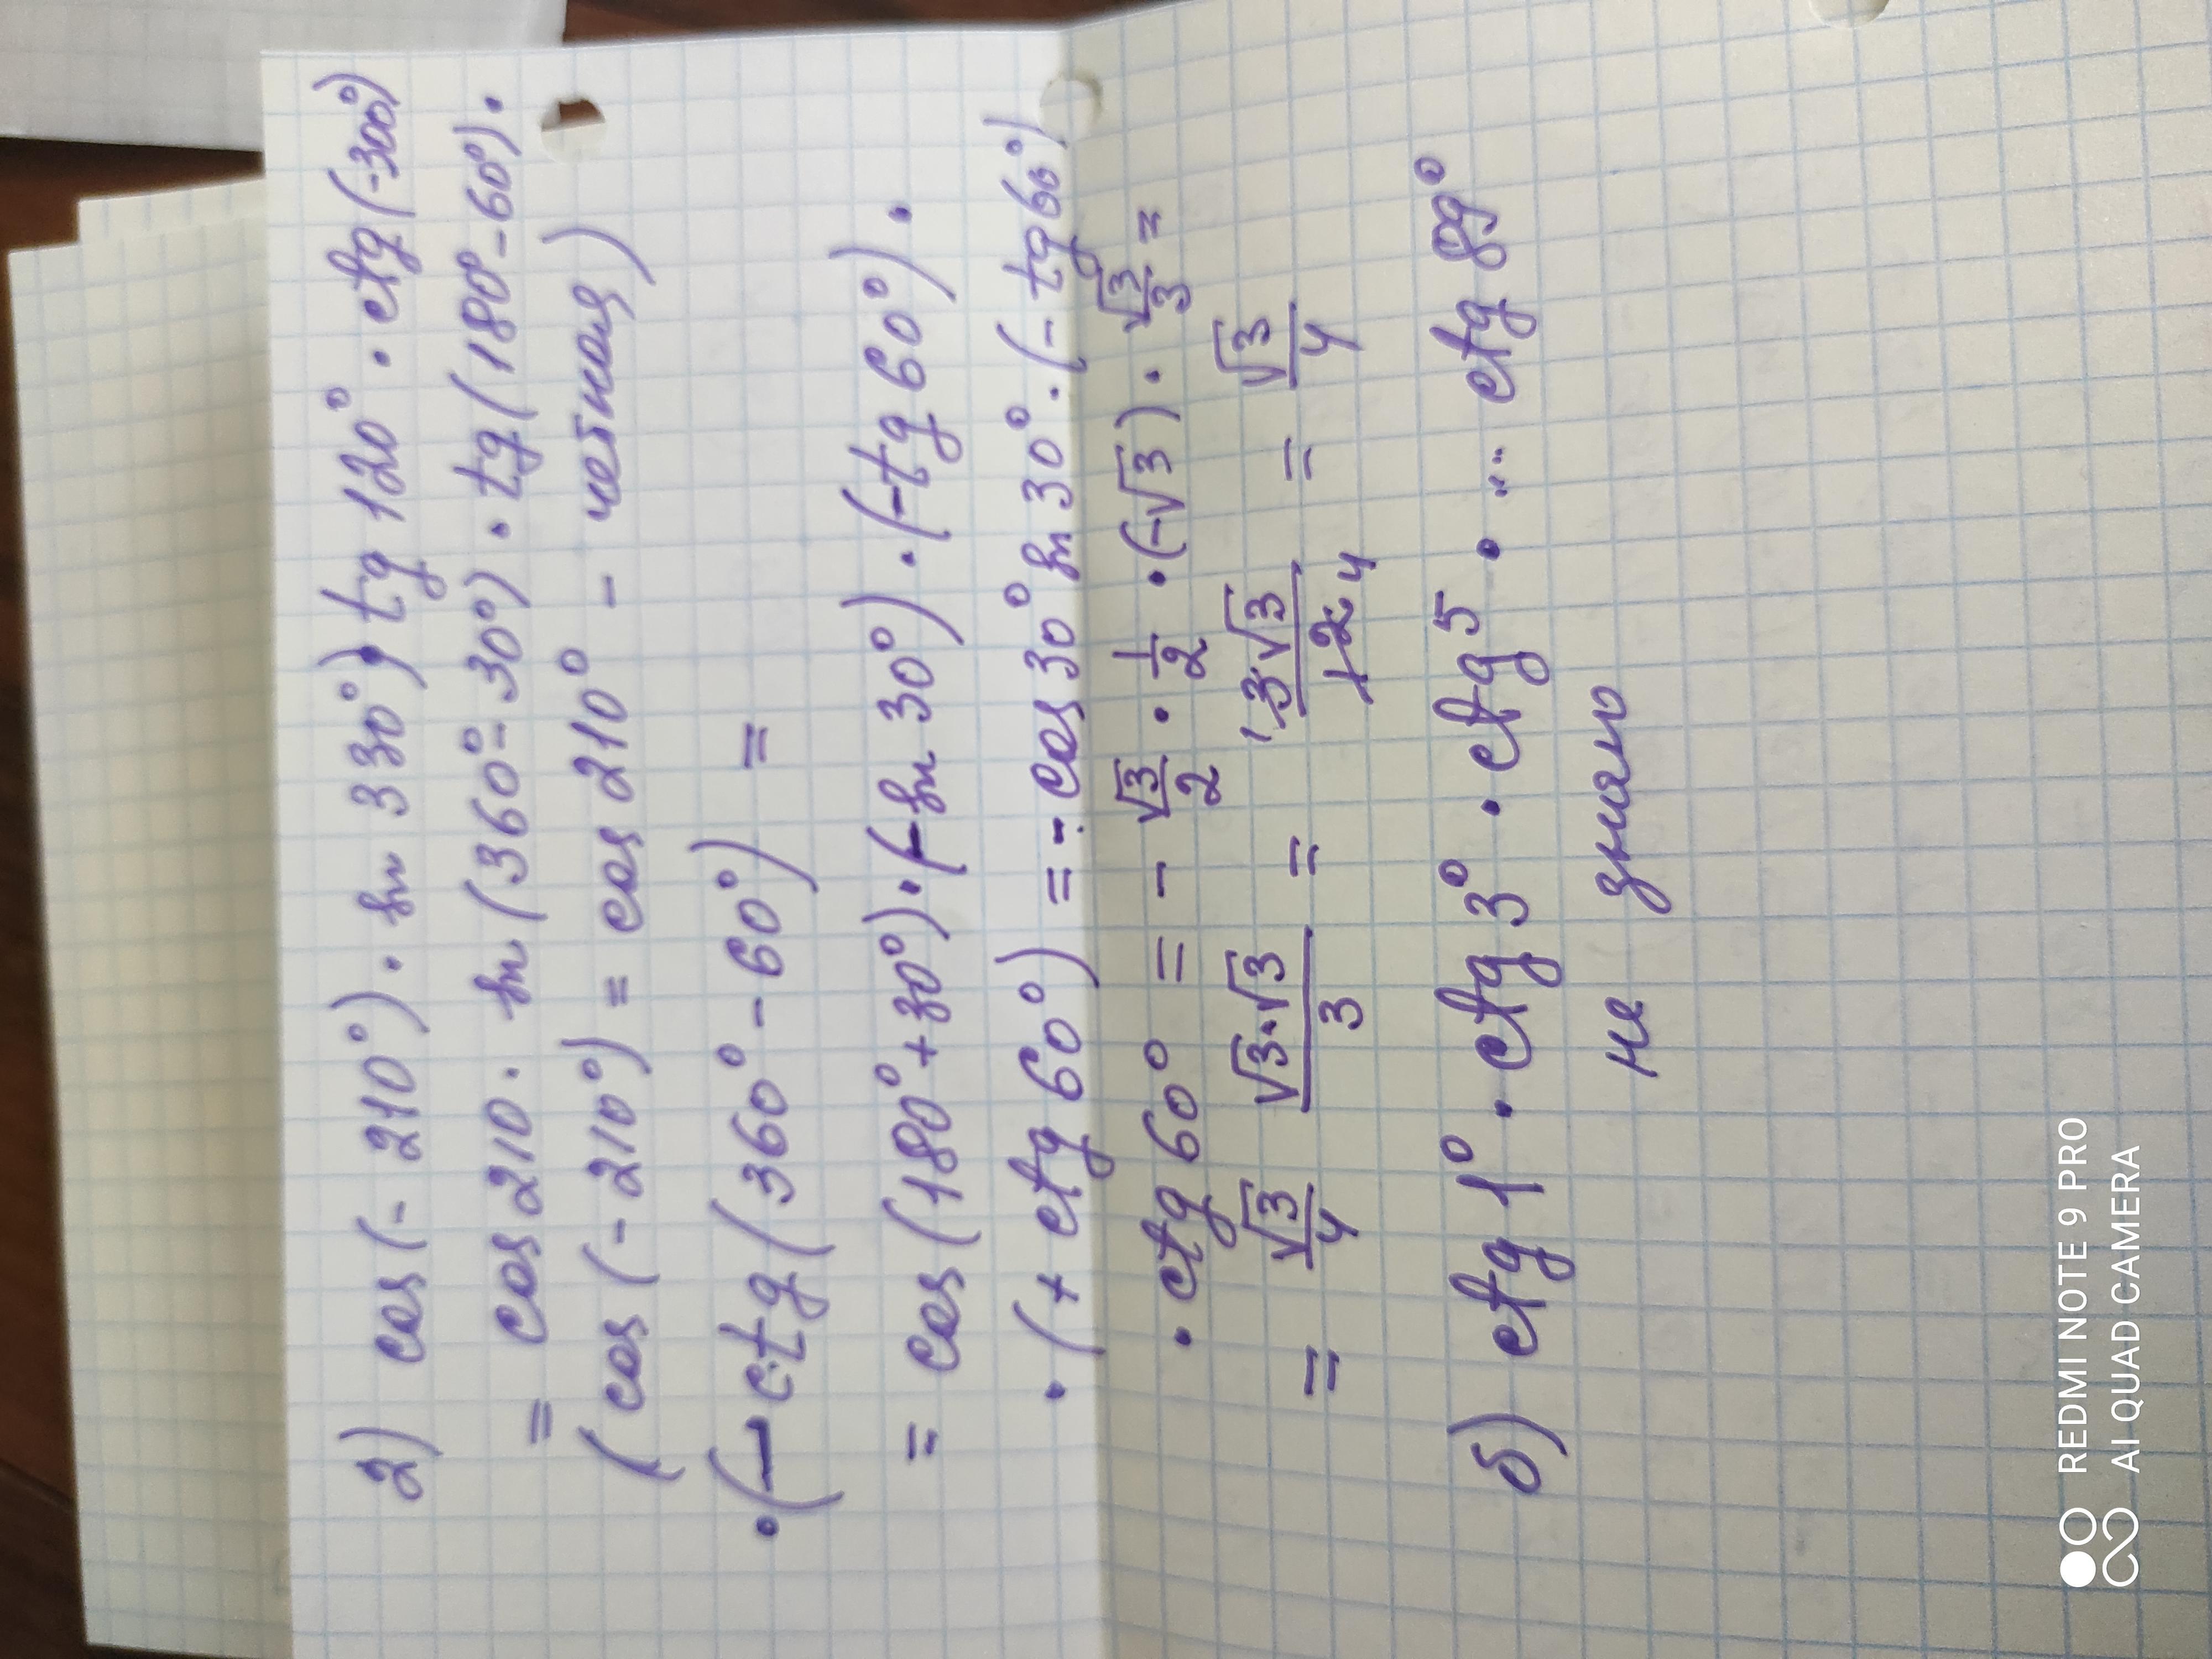 2) cos(-210°)·sin 330°)·tg 120°·ctg(-300°)
= cos 210· sin(360°-30°)·tg(180°-60°)·
(cos(-210°) = cos 210° - четная)
·(-ctg(360°-60°) =
= cos(180°+30°)·(-sin 30°)·(-tg 60°)·
·(+ctg 60°) = -cos 30° sin 30°·(-tg 60°)
·ctg 60° = - √3/2 · 1/2 ·(-√3)· √3/3 =
= √3/4 √3·√3/3 = 3·√3/12 4 = √3/4
б) ctg 1°·ctg 3°·ctg 5·... ctg 89°
не знаю
REDMI NOTE 9 PRO
AI QUAD CAMERA